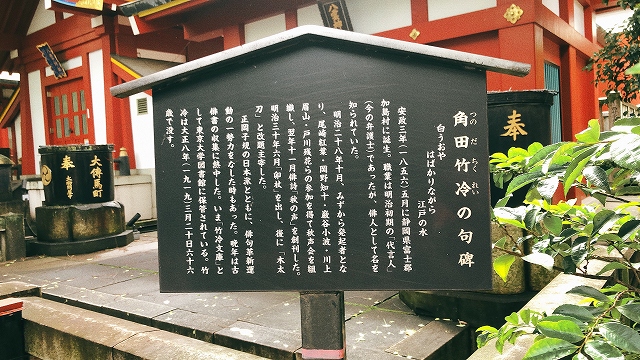 角田竹冷の句碑
つのだ ちくれい
白うおや
はばかりながら
江戸の水
安政三年（一八五六）五月に静岡県富士郡
加島村に誕生。職業は明治初期の「代言人」
（今の弁護士）であったが、俳人として名を
知られていた。
明治二十八年十月、みずから発起者とな
り、尾崎紅葉・岡野知十・巌谷小波・川上
眉山・戸川残花らの参加を得て秋声会を組
織し、翌年十一月俳誌「秋の声」を創刊した。
明治三十年六月「卯杖」を出し、後に「木太
刀」と改題主宰した。
正岡子規の日本派とともに、俳句革新運
動の一勢力をなした時もあった。晩年は古
俳書の収集に熱中した。いま、「竹冷文庫」と
して東京大学図書館に保管されている。竹
冷は大正八年（一九一九）三月二十日六十六
歳で没す。
奉
奉
大傳馬町